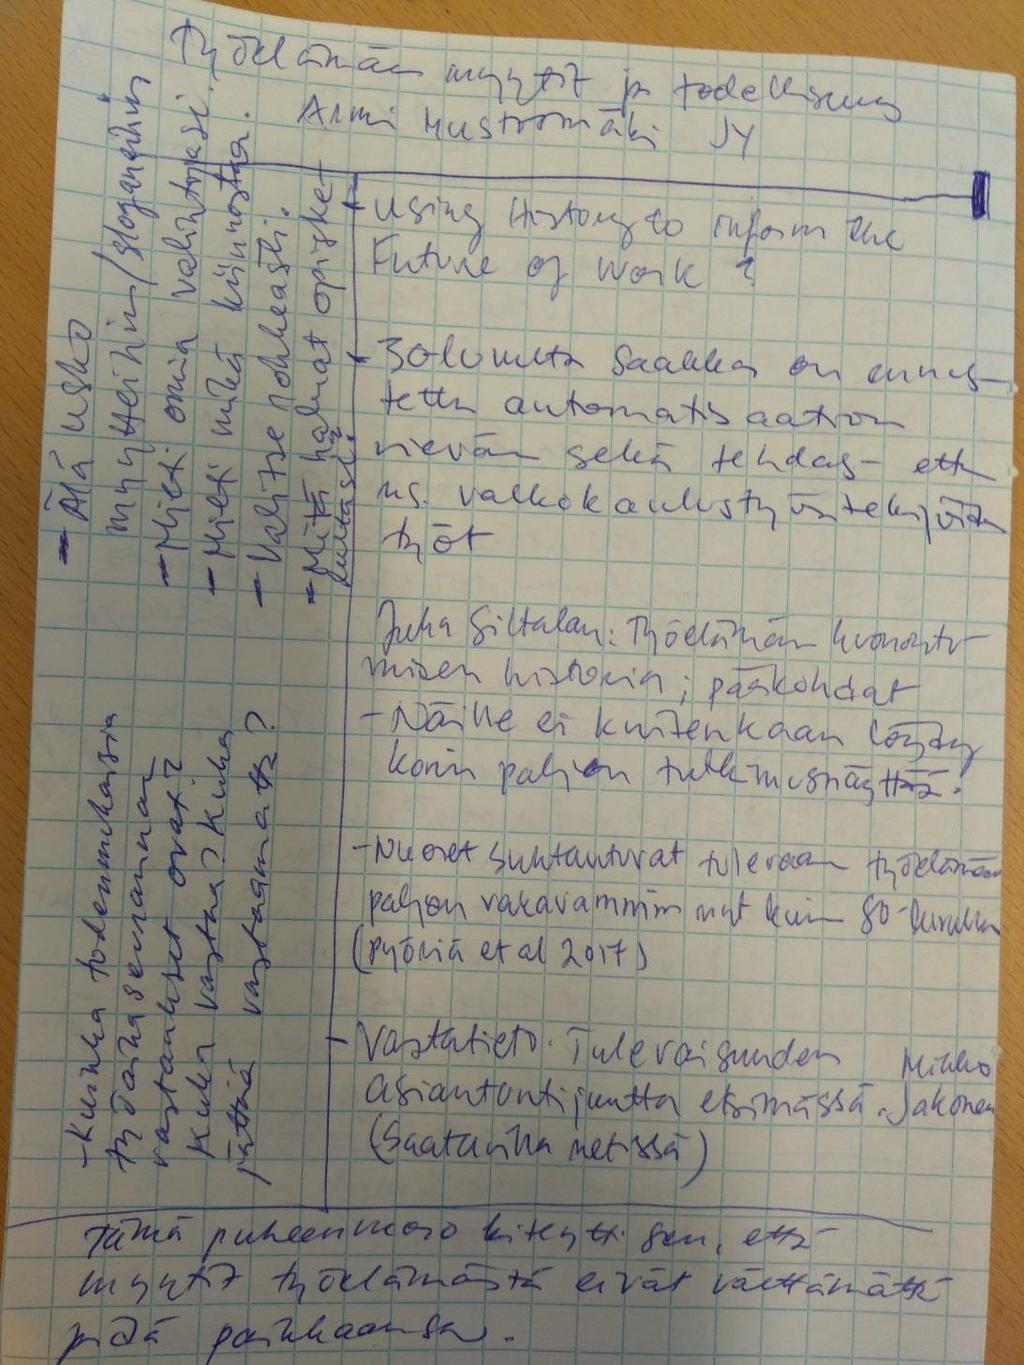 Työelämän myytit ja todellisuus
Armi Mustosmäki JY
- Using History to inform the
Future of work?
- 30-luvulta saakka on ennus-
tettu automatisaation
vievän sekä tehdas- että
ns. valkokaulustyöntekijöiden
työt
Juha Siltalan: Työelämän huonontu
misen historia; pääkohdat
- Näille ei kuitenkaan löydy
kovin paljon tutkimusnäyttöä.
- Nuoret suhtautuvat tulevaan työelämään
paljon vakavammin nyt kuin 80-luvulla
(Pyöriä et al 2017)
- Vastatieto. Tulevaisuuden Mikko
asiantuntijuutta etsimässä. Jakonen
(Saatavilla netissä)
- Älä usko
myytteihin/sloganeihin
- Mieti omia valintojasi
- Mieti mikä kiinnostaa.
- Valitse rohkeasti.
- Mitä haluat opiskel-
- Kuinka todenmukaisia
työtäsi seuraavat
vastaukset ovat?
Kuka vastaa? Kuka
jättää vastaamatta?
Tämä puheenvuoro kiteytti sen, että
myytit työelämästä eivät välttämättä
pidä paikkaansa.